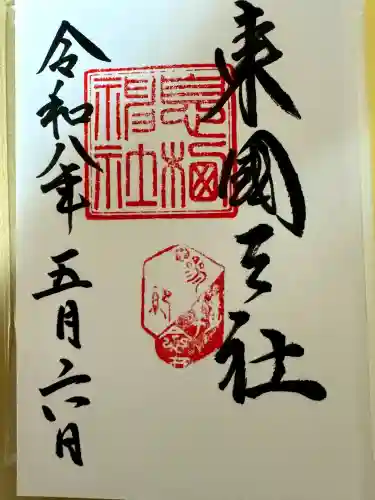 東國三社
息栖
神社
令和八年 五月六日